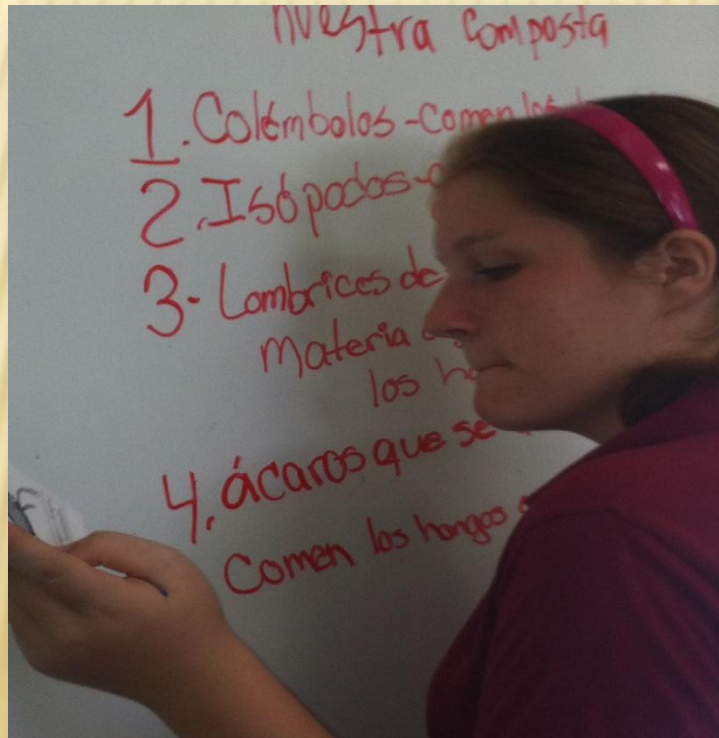 nuestra Composta
1. Colémbolos - Comen los
2. Isópodos -
3. Lombrices de
Materia
los
4. ácaros que se
Comen los hongos